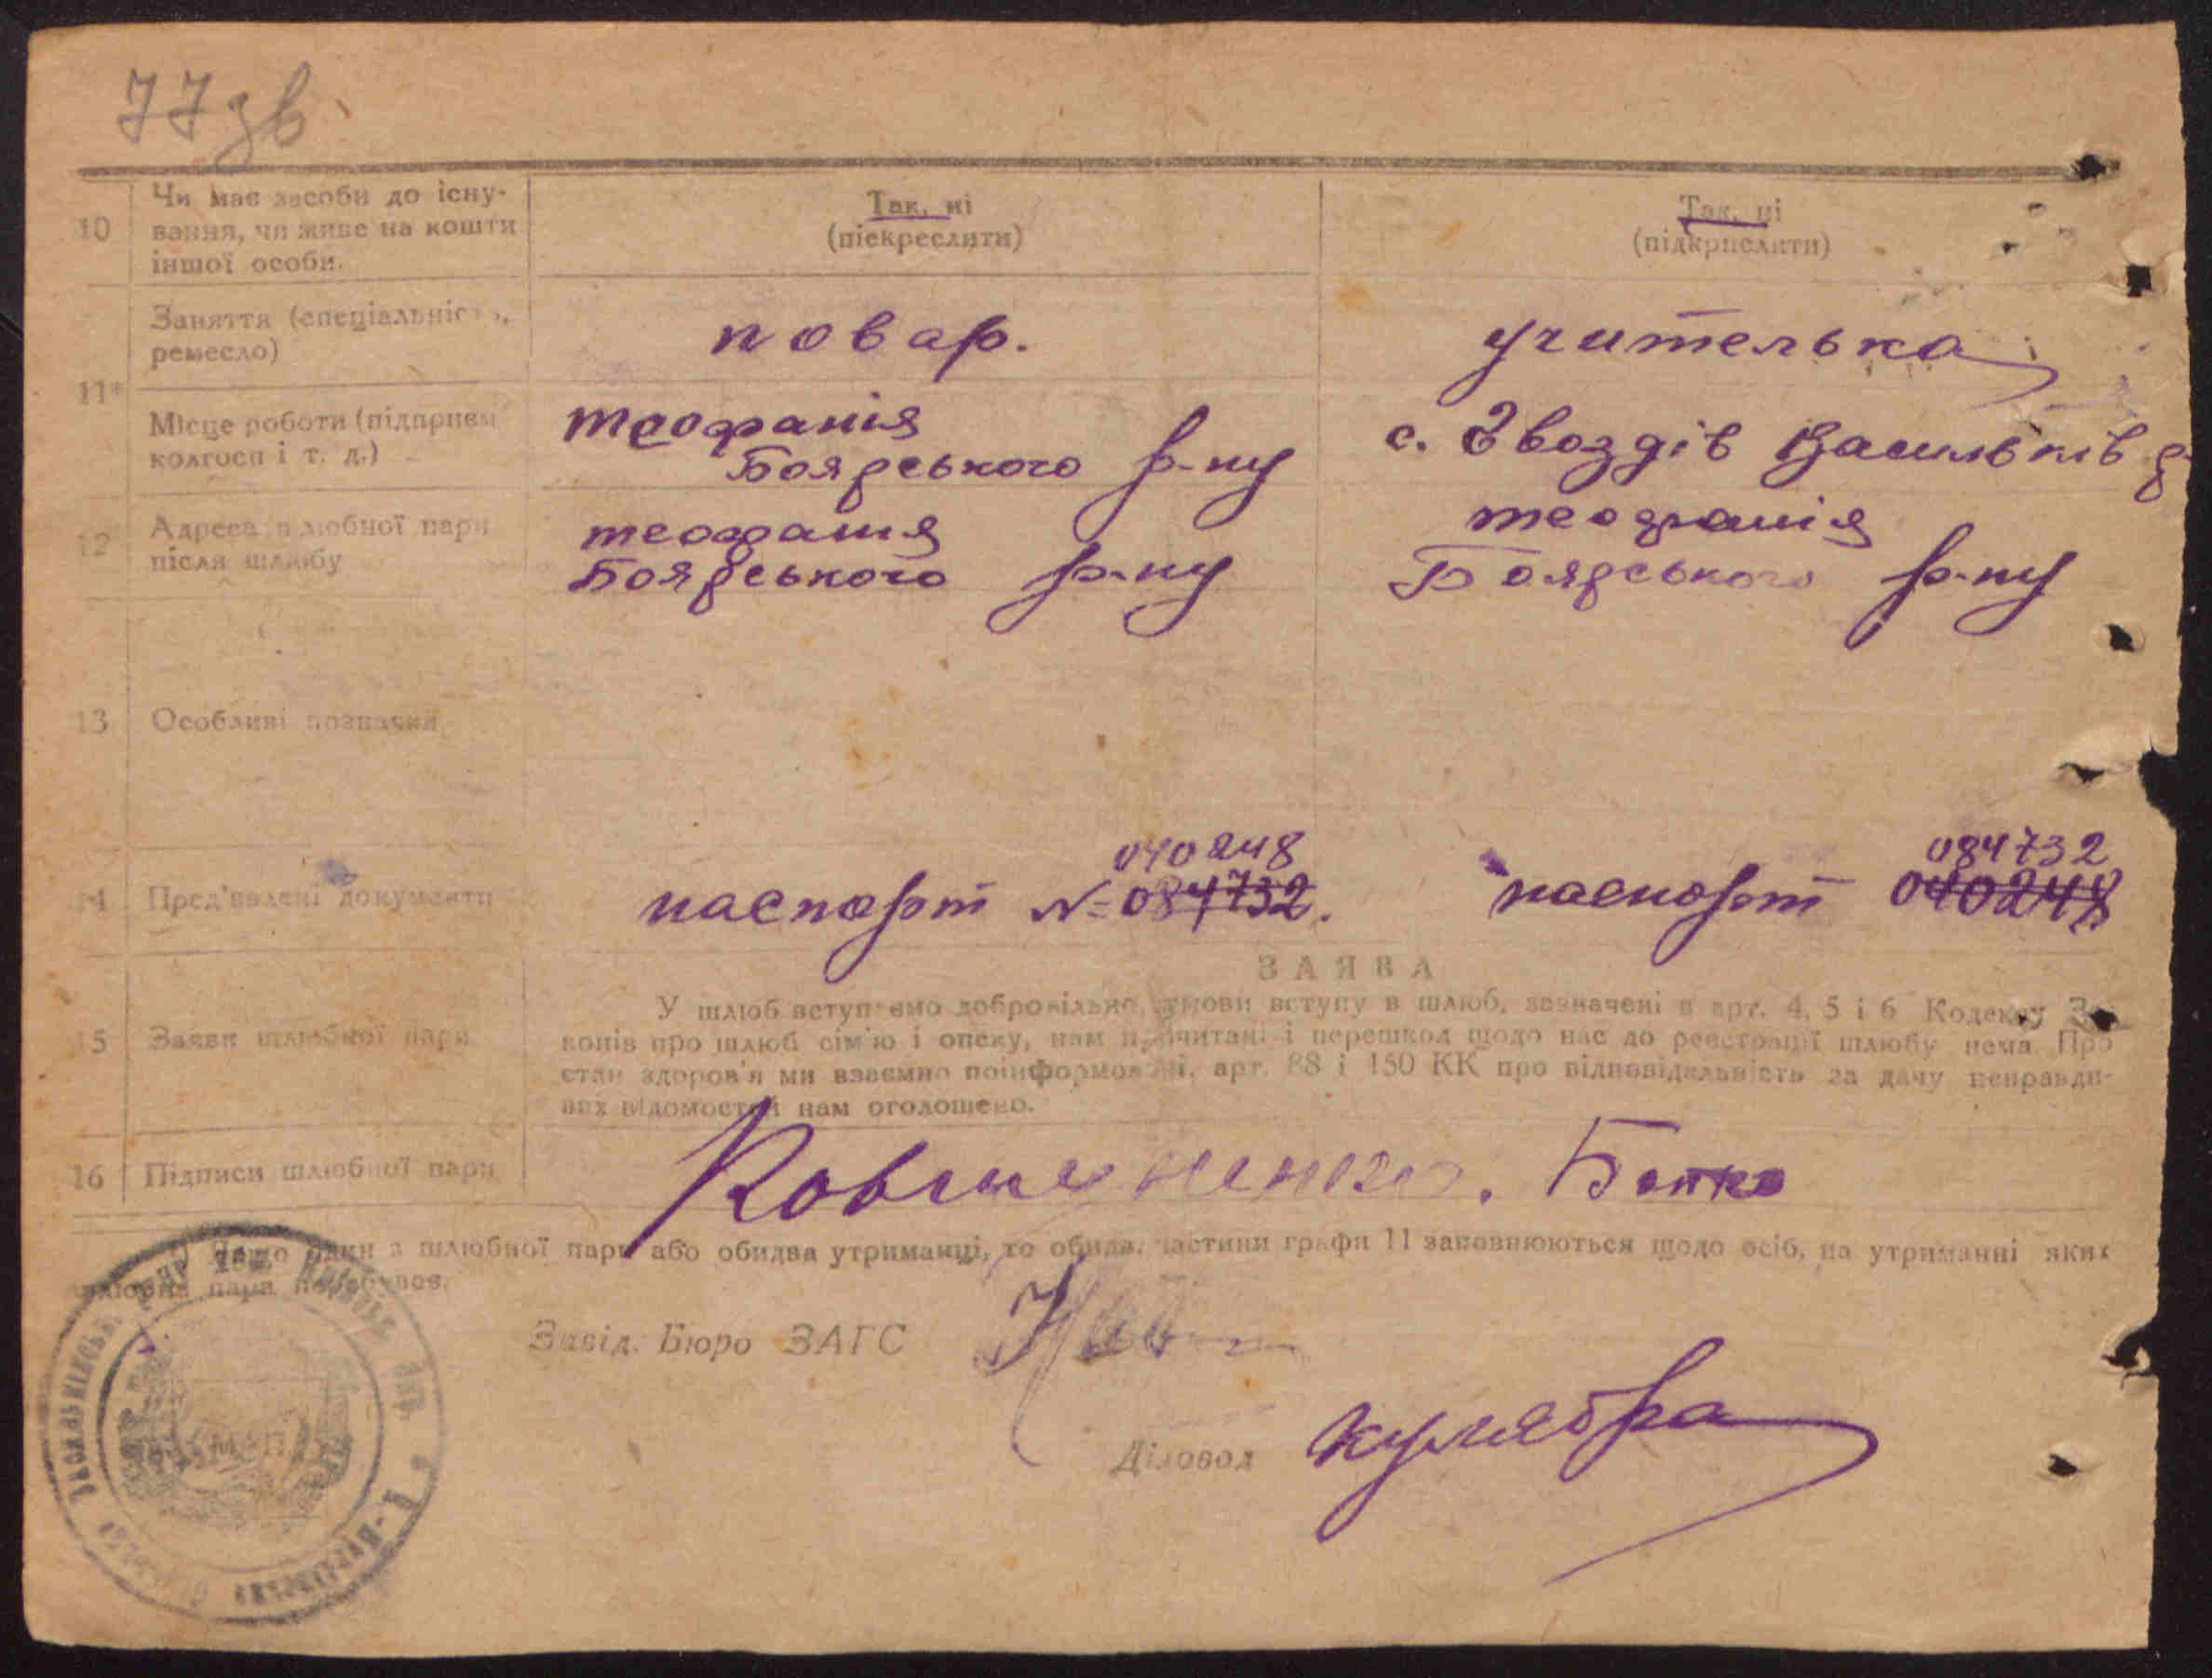 77 зв
10
Чи має засоби до існу-
вання, чи живе на кошти
іншої особи.
Так, ні
(піскреслити)
Так, ні
(підкрислити)
11*
Заняття (спеціальність,
ремесло)
повар.
учителька
Місце роботи (підприєм
колгосп і т. д.)
теофанія
Боярського р-ну
с. Гвоздів Васильків р
12
Адреса шлюбної пари
після шлюбу
теофанія
Боярського р-ну
теофанія
Боярського р-ну
13
Особливі позначки
14
Пред'явлені документи
040248
паспорт № 084732.
084732
паспорт 040248
15
Заяви шлюбної пари
ЗАЯВА
У шлюб вступаємо добровільно, умови вступу в шлюб, зазначені в арт. 4, 5 і 6 Кодексу За-
конів про шлюб сім'ю і опеку, нам прочитані і перешкод щодо нас до реєстрації шлюбу нема. Про
стан здоров'я ми взаємно поінформовані, арт. 88 і 150 КК про відповідальність за дачу неправди-
вих відомостей нам оголошено.
16
Підписи шлюбної пари
Бойко
Якщо один з шлюбної пари або обидва утриманці, то обидві частини графи 11 заповнюються щодо осіб, на утриманні яких
шлюбна пара перебуває.
Завід. Бюро ЗАГС
Діловод